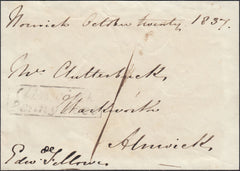 Norwich October twenty 1837.
Mrs Clutterbuck
Warkworth
Alnwick
Edwd Fellowes